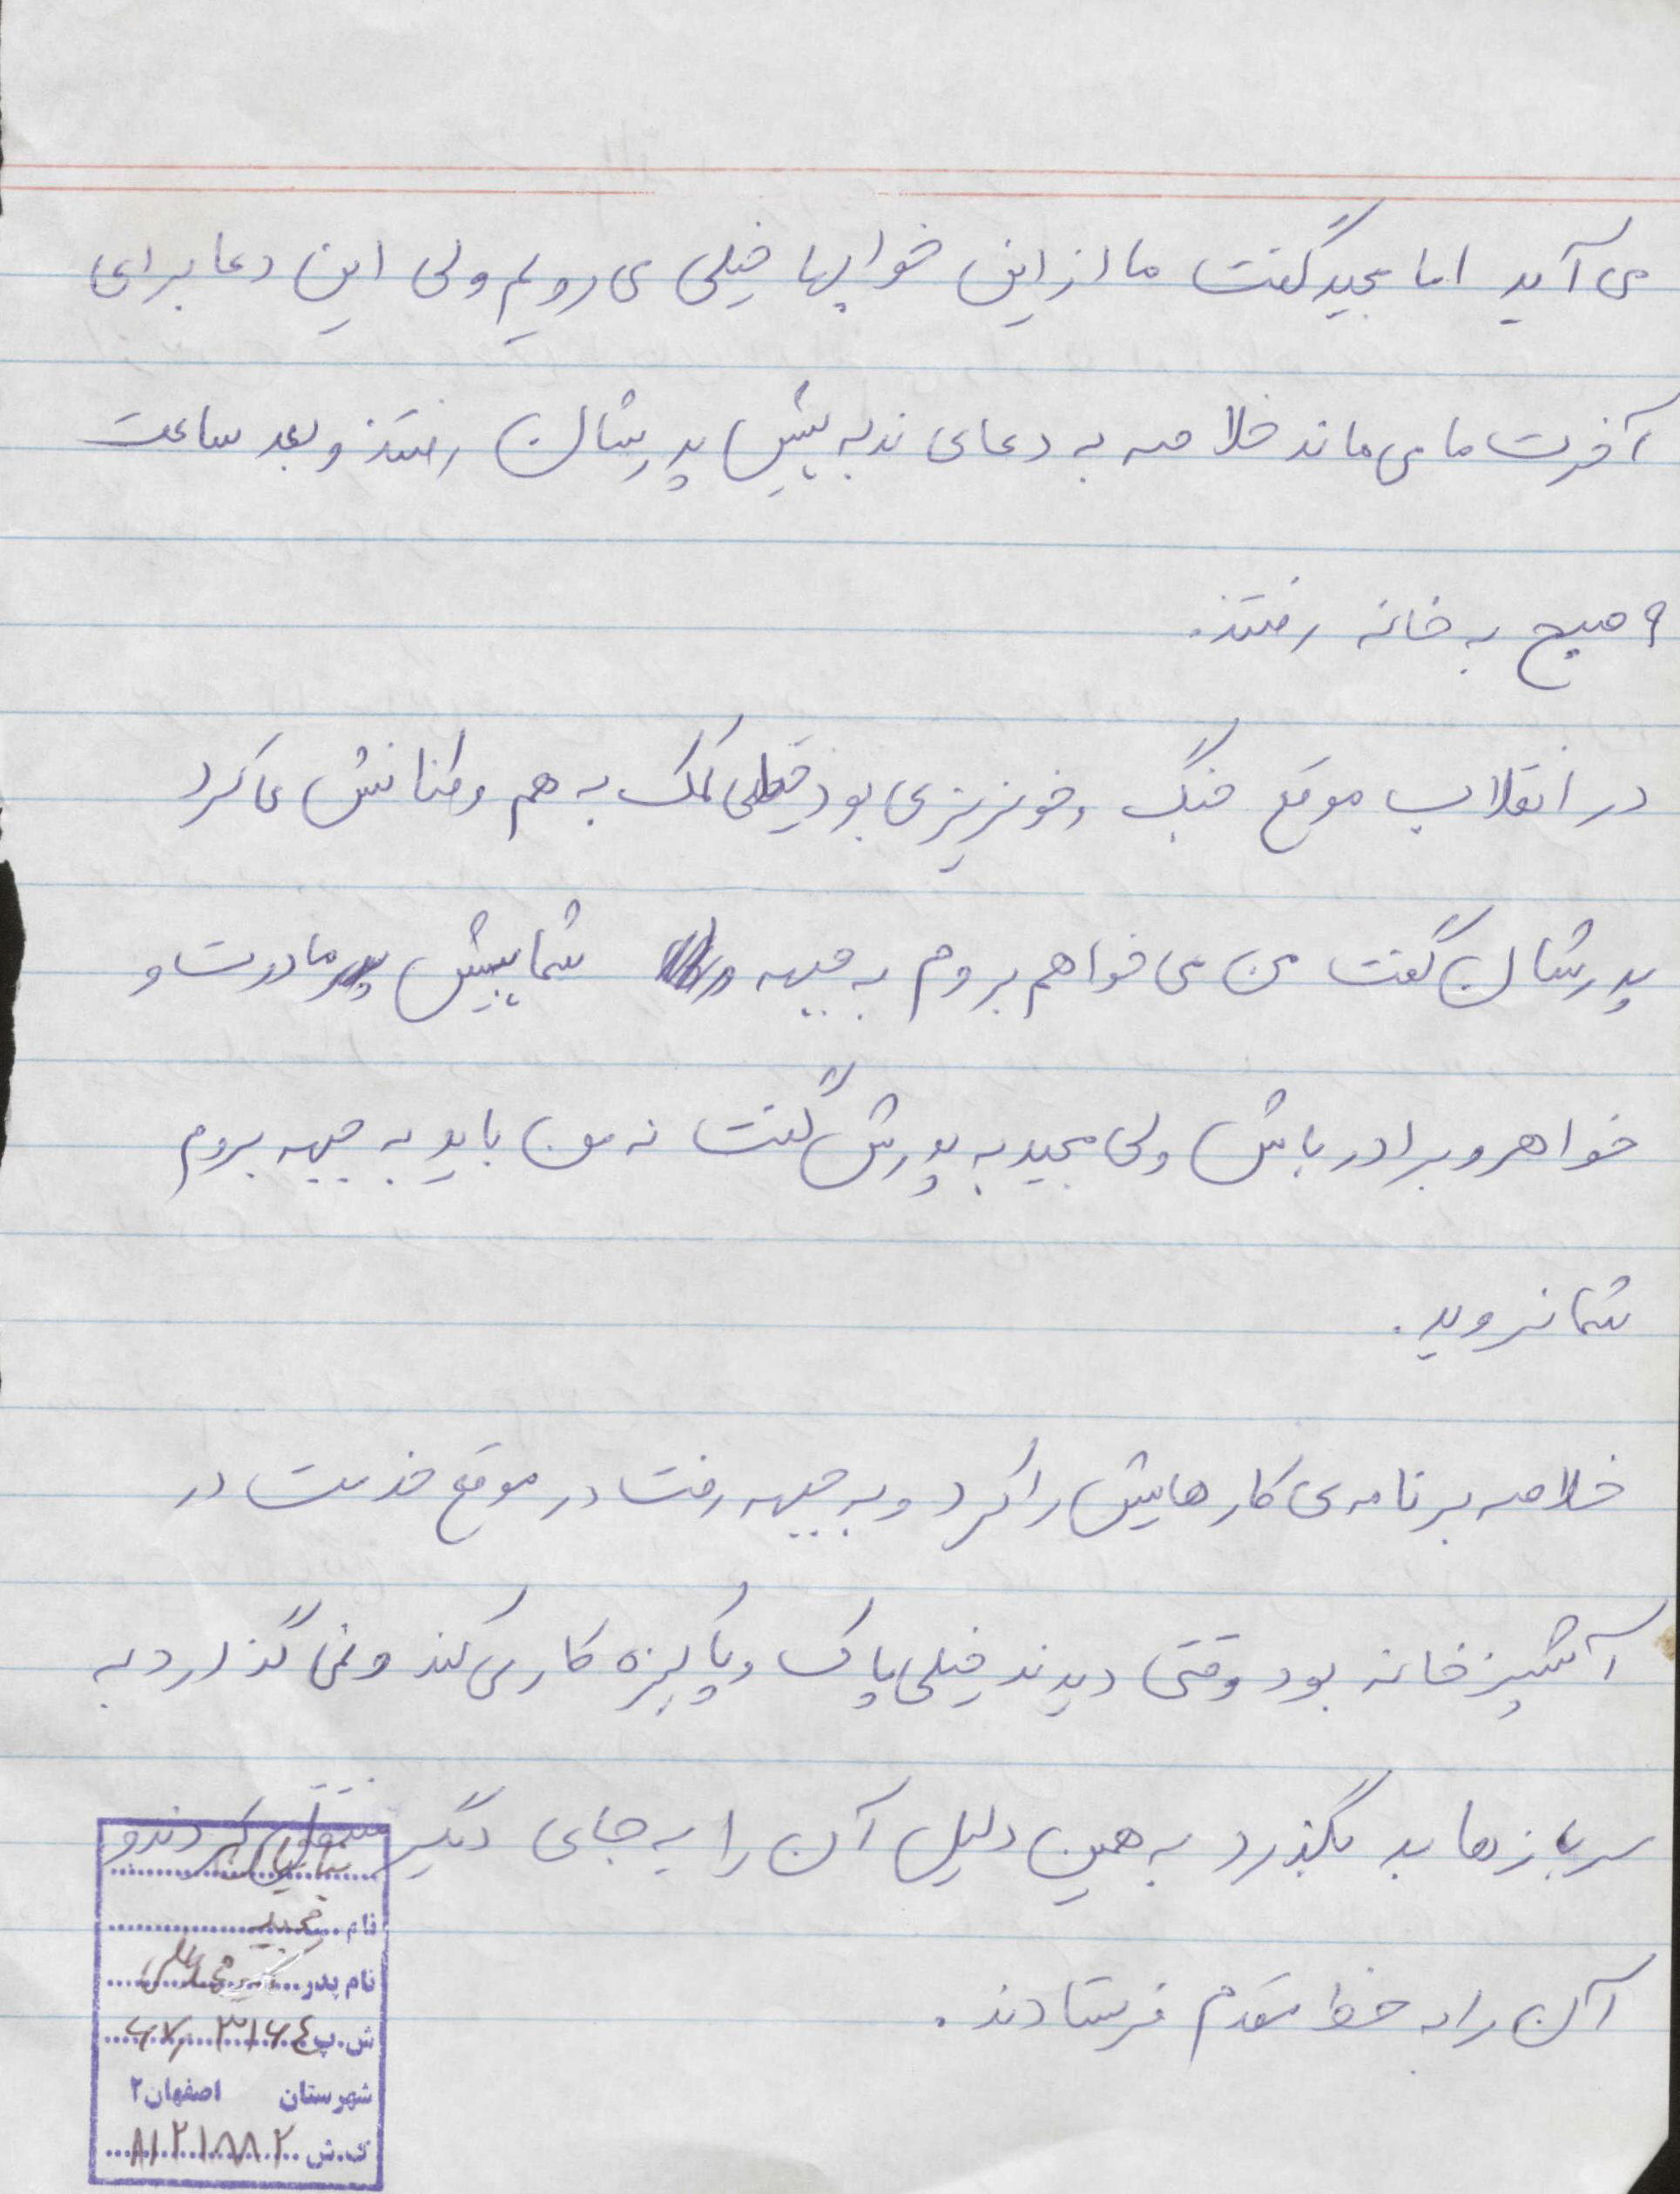 می آید اما مجید گفت ما از این خوابها خیلی می رویم ولی این دعا برای
آخرت ما می ماند خلاصه به دعای ندبه پیش پدرشان رفتند و بعد ساعت
۹ صبح به خانه رفتند.
در انقلاب موقع جنگ و خونریزی بود خیلی کمک به هم وطنانش می کرد
پدرشان گفت من می خواهم بروم به جبهه شما پیش مادرت و
خواهر و برادر باش ولی مجید به پدرش گفت نه من باید به جبهه بروم
شما نروید.
خلاصه برنامه ی کارهایش را کرد و به جبهه رفت در موقع خدمت در
آشپزخانه بود وقتی دیدند خیلی پاک و پاکیزه کار می کند و نمی گذارد به
سربازها بد بگذرد به همین دلیل آن را به جای دیگر منتقل کردند و
آن را به خط مقدم فرستادند.
نام مجید
نام پدر
ش.پ ۳۱۶۴
شهرستان اصفهان ۲
ک.ش ۸۱۲۱۸۸۲